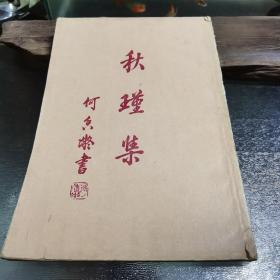 秋瑾集
何香凝書